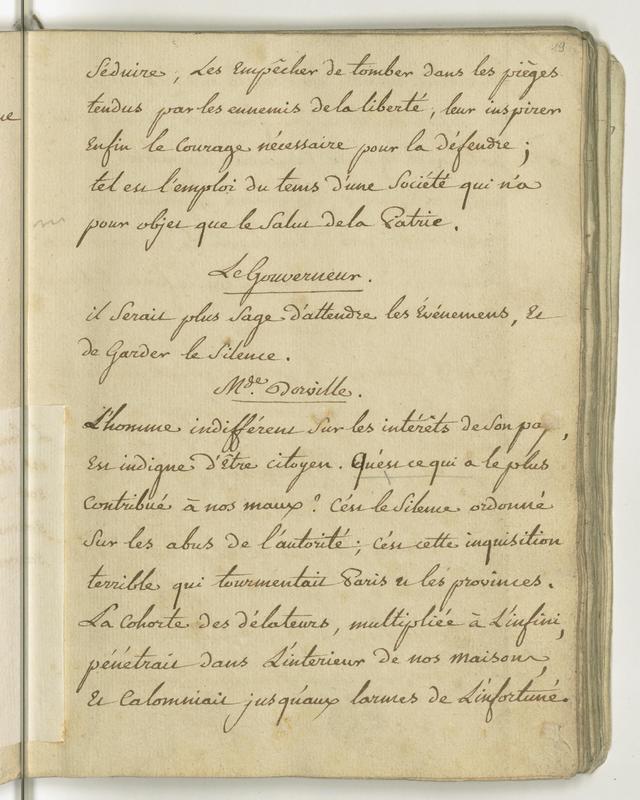 19
séduire, Les Empêcher de tomber dans les pièges
tendus par les ennemis de la liberté, leur inspirer
Enfin le Courage nécessaire pour la défendre ;
tel est l'emploi du tems d'une Société qui n'a
pour objet que le Salut de la Patrie.
Le Gouverneur.
il Serait plus Sage d'attendre les Événemens, Et
de Garder le Silence.
Mde. Dorville.
L'homme indifférent Sur les intérêts de Son pay,
Est indigne d'Être citoyen. Qu'est ce qui a le plus
Contribué à nos maux ? C'est le Silence ordonné
Sur les abus de l'autorité ; c'est cette inquisition
terrible qui tourmentait Paris et les provinces.
La Cohorte des délateurs, multipliée à L'infini,
pénétrait dans L'interieur de nos maisons,
Et Calomniait jusqu'aux larmes de L'infortuné.